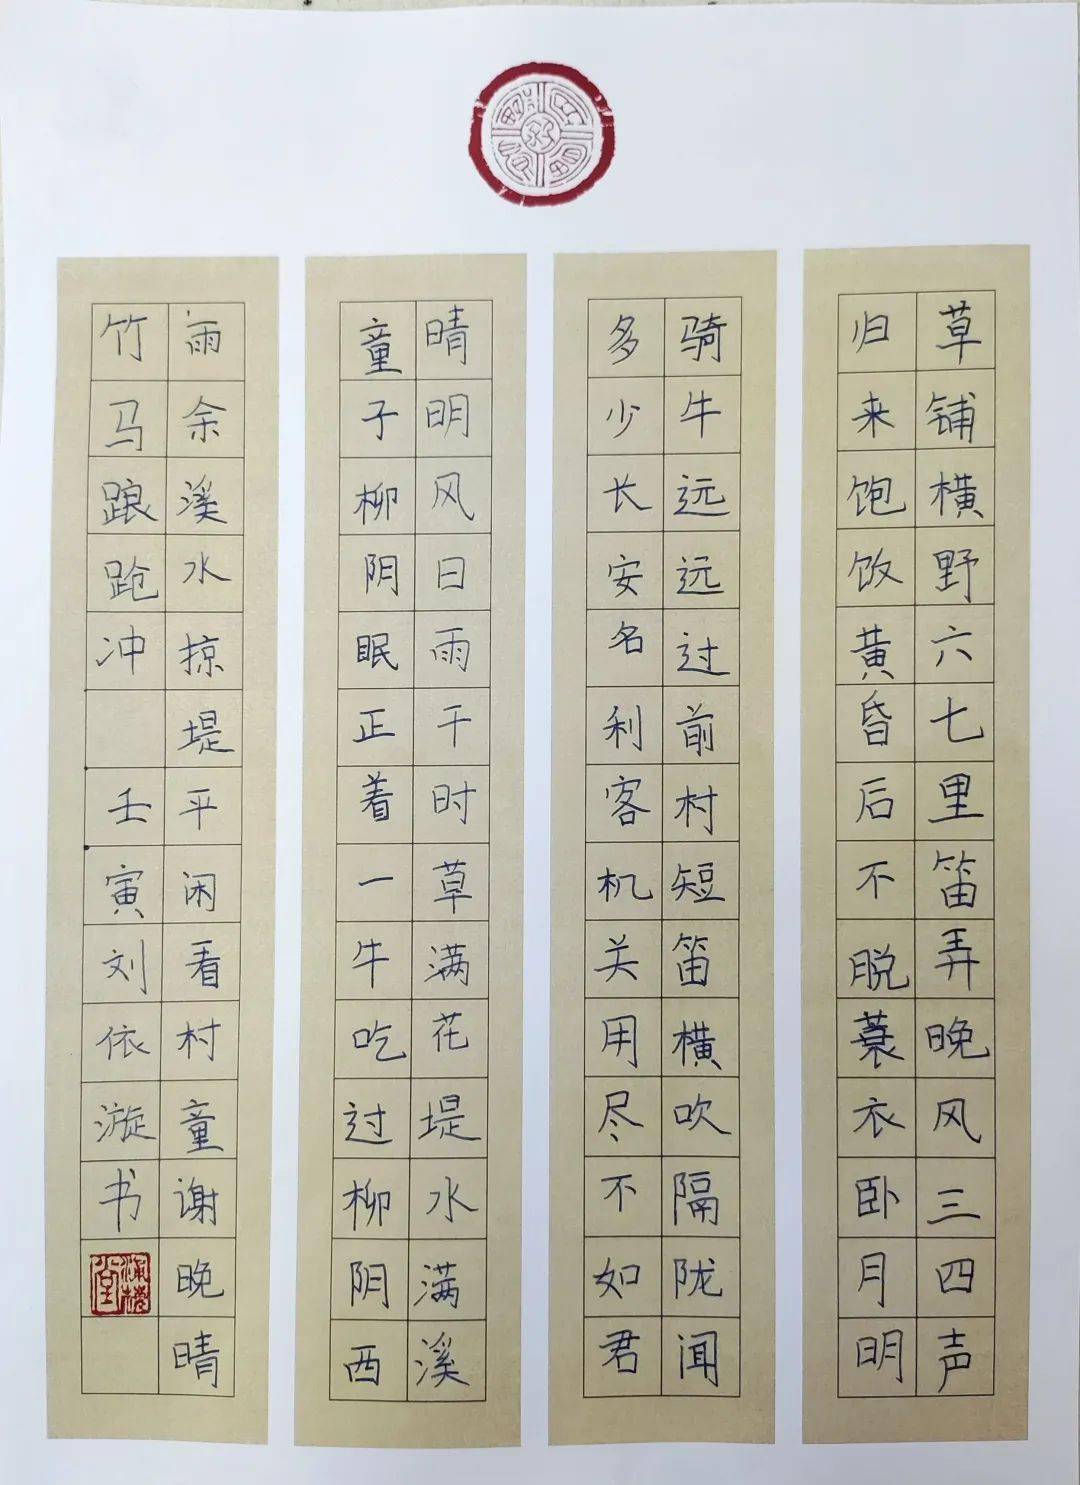 草铺横野六七里笛弄晚风三四声
归来饱饭黄昏后不脱蓑衣卧月明
骑牛远远过前村短笛横吹隔陇闻
多少长安名利客机关用尽不如君
晴明风日雨干时草满花堤水满溪
童子柳阴眠正着一牛吃过柳阴西
雨余溪水掠堤平闲看村童谢晚晴
竹马踉跄冲
壬寅刘依漩书